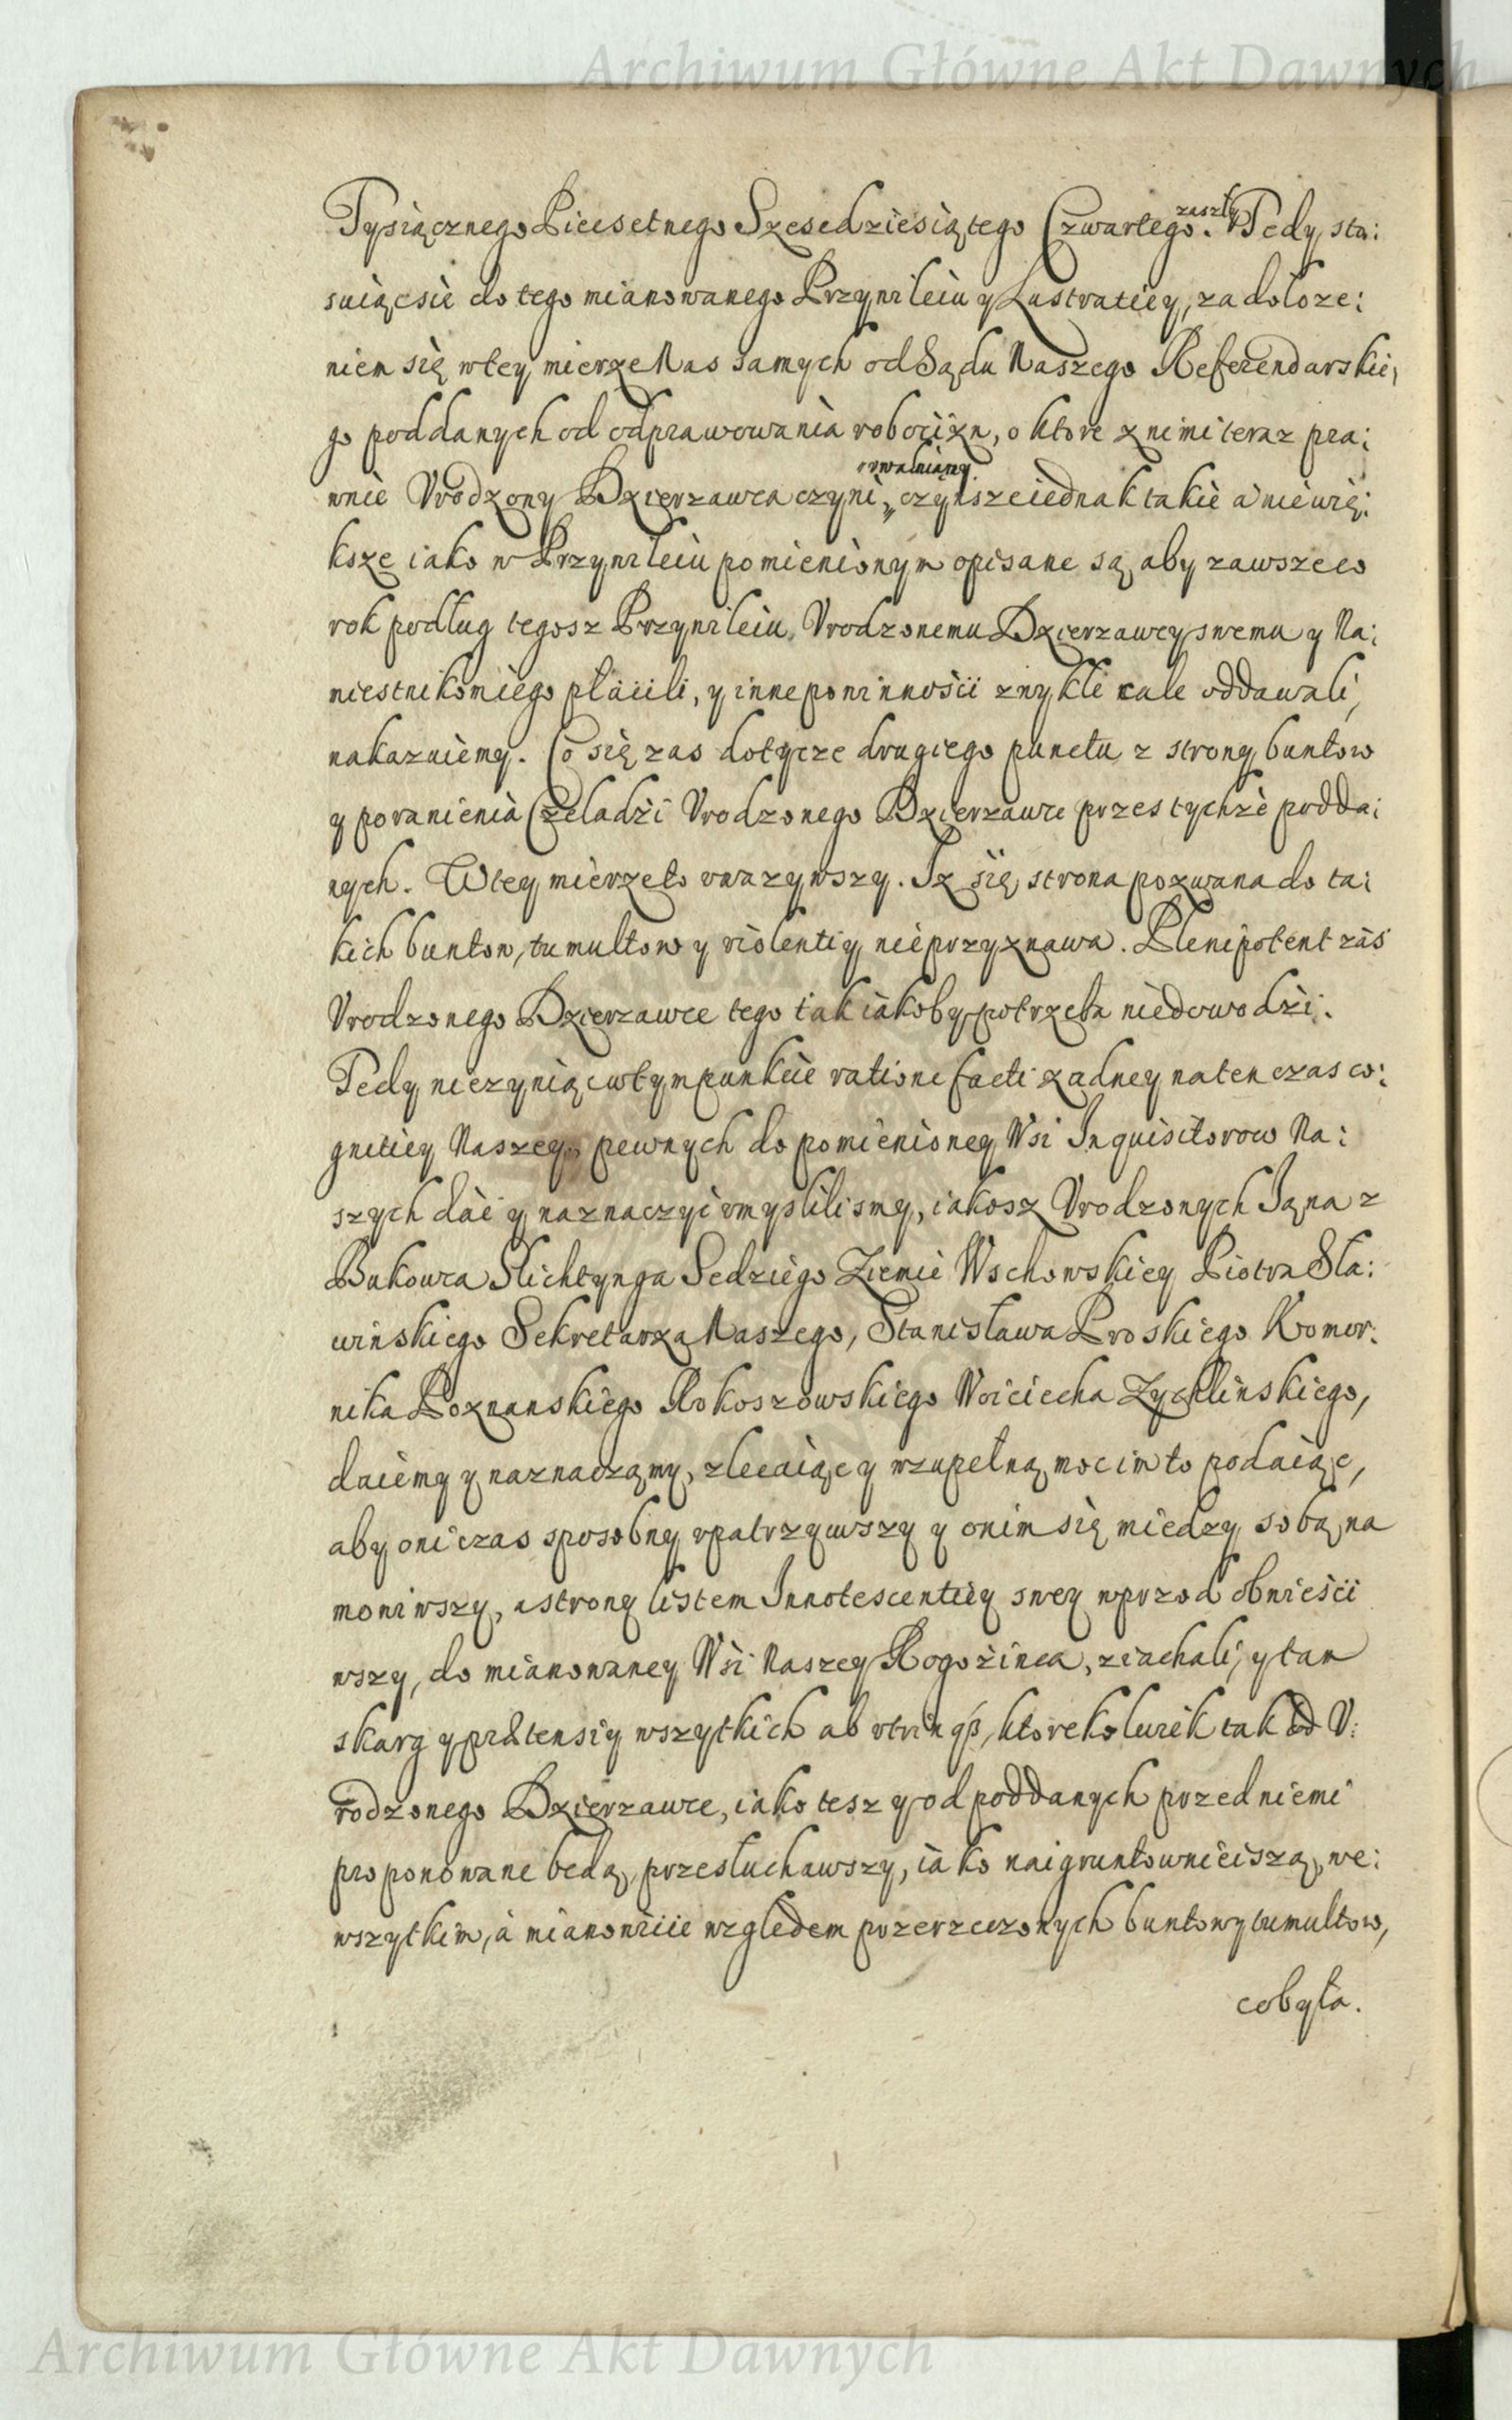 Archiwum Główne Akt Dawnych
Tysiącznego Piecsetnego Szescdziesiątego Czwartego zaszły. Tedy sto:
suiącsie do tego mianowanego Przywileiu y Lustratiey, za doloze:
niem się wtey mierze Nas samych od Sądu Naszego Referendarskie,
go poddanych od odprawowania robocizn, o ktore z nimi teraz pra:
wnie Vrodzony Dzierzawca czyni, vwalniamy. czynsze iednak takie a niewię:
ksze iako w Przywileiu pomienionym opisane są, aby zawsze co
rok podług tegosz Przywileiu, Vrodzonemu Dzierzawcy swemu y Na:
miestnikom iego płacili, y inne powinności zwykłe cale oddawali,
nakazuiemy. Co się zas dotycze drugiego punctu z strony buntow
y poranienia Czeladzi Vrodzonego Dzierzawce przes tychże podda:
nych. Wtey mierze to vwazywszy. Iz się strona pozwana do ta:
kich buntow, tumultow y violentiy nieprzyznawa. Plenipotent zaś
Vrodzonego Dzierzawce tego tak iakoby potrzeba niedowodzi.
Tedy nieczyniąc wtym punkcie ratione facti zadney naten czas co:
gnitiey Naszey, pewnych do pomienioney Wsi Inquisitorow Na:
szych dać y naznaczyć vmyslilismy, iakosz Vrodzonych Iana z
Bukowca Slichtynga Sedziego Ziemie Wschowskiey Piotra Sla:
winskiego Sekretarza Naszego, Stanisława Proskiego Komor:
nika Poznanskiego Rokoszowskiego Woiciecha Zychlinskiego,
daiemy y naznaczamy, zlecaiąc y wzupełną moc im to podaiąc,
aby oni czas sposobny vpatrzywszy y onim się miedzy sobą na
mowiwszy, a strony listem Innotescentiey swey wprzod obwieści
wszy, do mianowaney Wsi Naszey Rogozinca, ziachali, y tam
skarg y prætensiy wszytkich ab vtrinqȝ, ktorekolwiek tak od V:
rodzonego Dzierzawce, iako tesz y od poddanych przed niemi
proponowane będą, przesłuchawszy, iako naigruntownieiszą, we:
wszytkim, a mianowicie względem pozerzeczonych buntow y tumultow,
cobyła.
Archiwum Główne Akt Dawnych